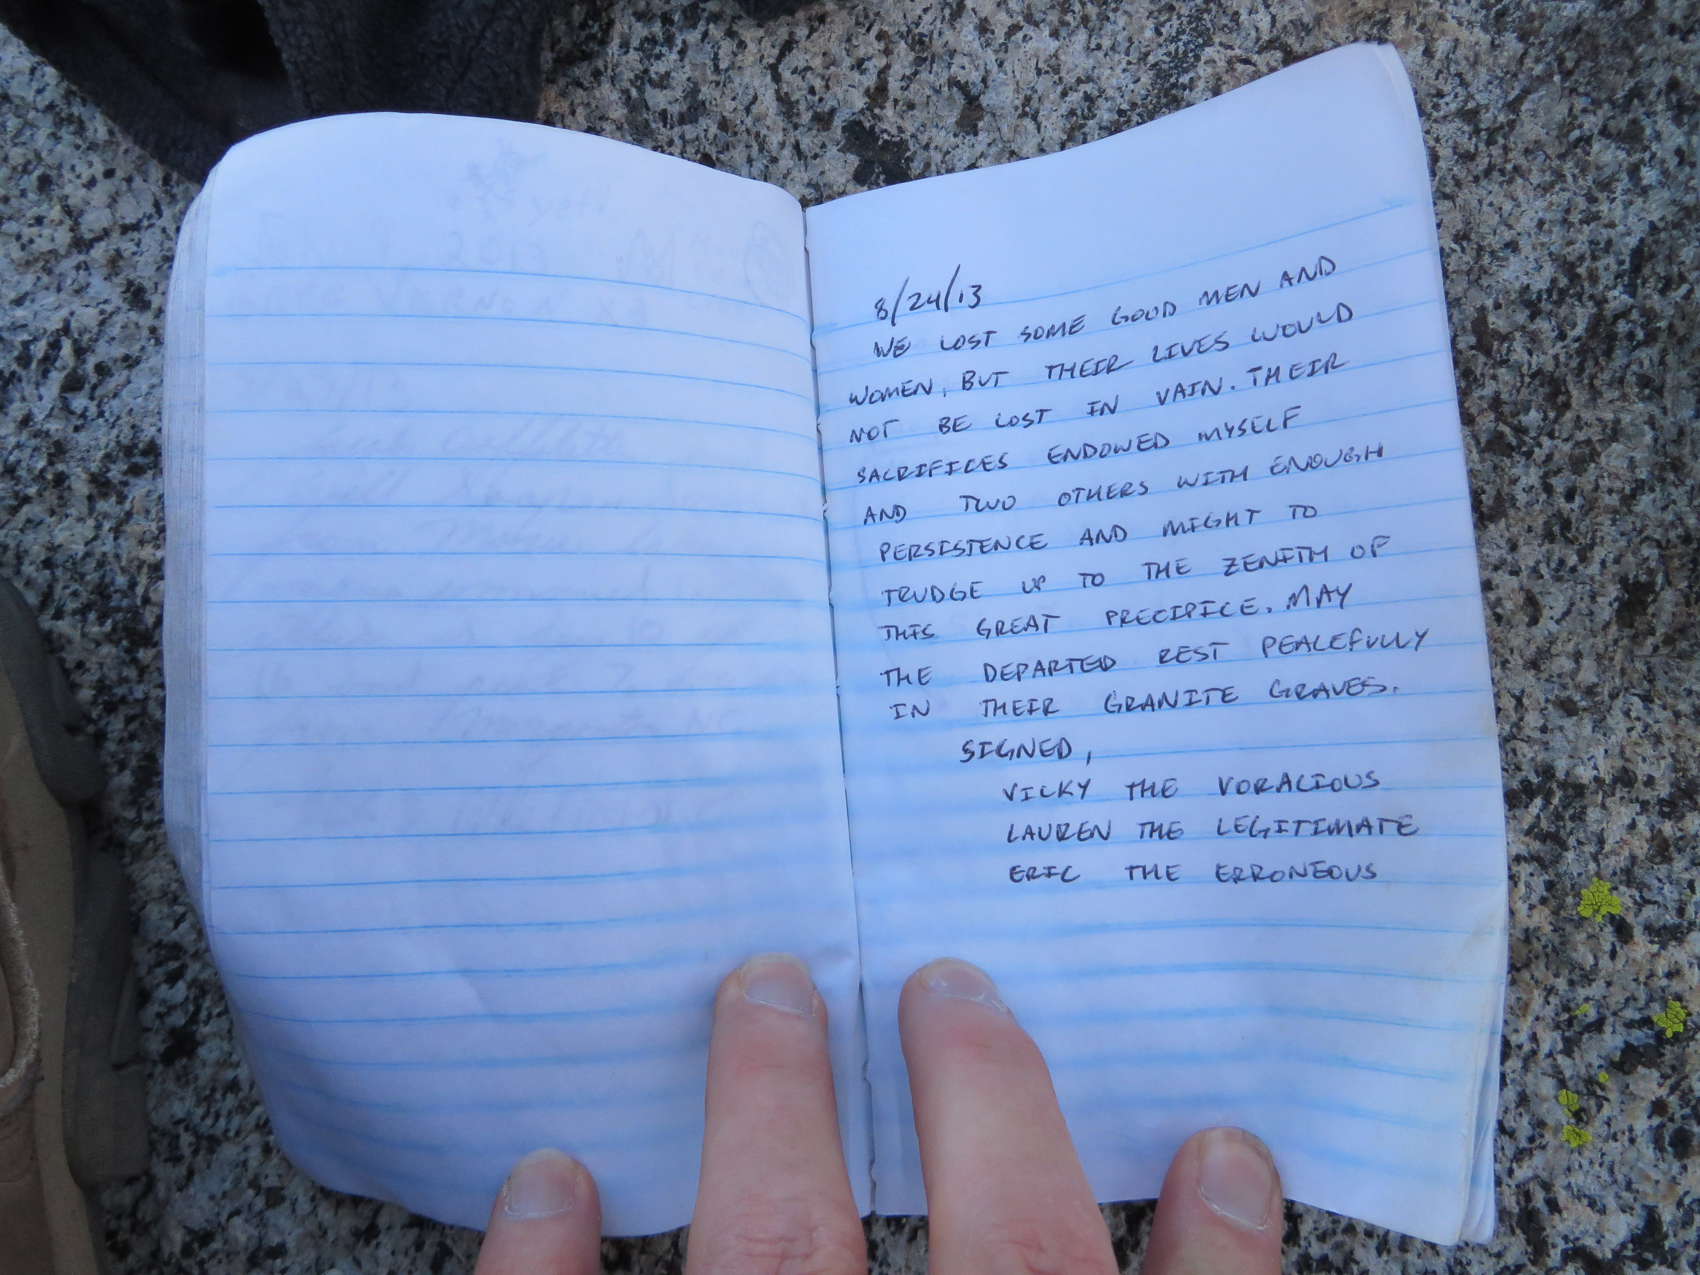 8/24/13
WE LOST SOME GOOD MEN AND
WOMEN, BUT THEIR LIVES WOULD
NOT BE LOST IN VAIN. THEIR
SACRIFICES ENDOWED MYSELF
AND TWO OTHERS WITH ENOUGH
PERSISTENCE AND MIGHT TO
TRUDGE UP TO THE ZENITH OF
THIS GREAT PRECIPICE. MAY
THE DEPARTED REST PEACEFULLY
IN THEIR GRANITE GRAVES.
SIGNED,
VICKY THE VORACIOUS
LAUREN THE LEGITIMATE
ERIC THE ERRONEOUS